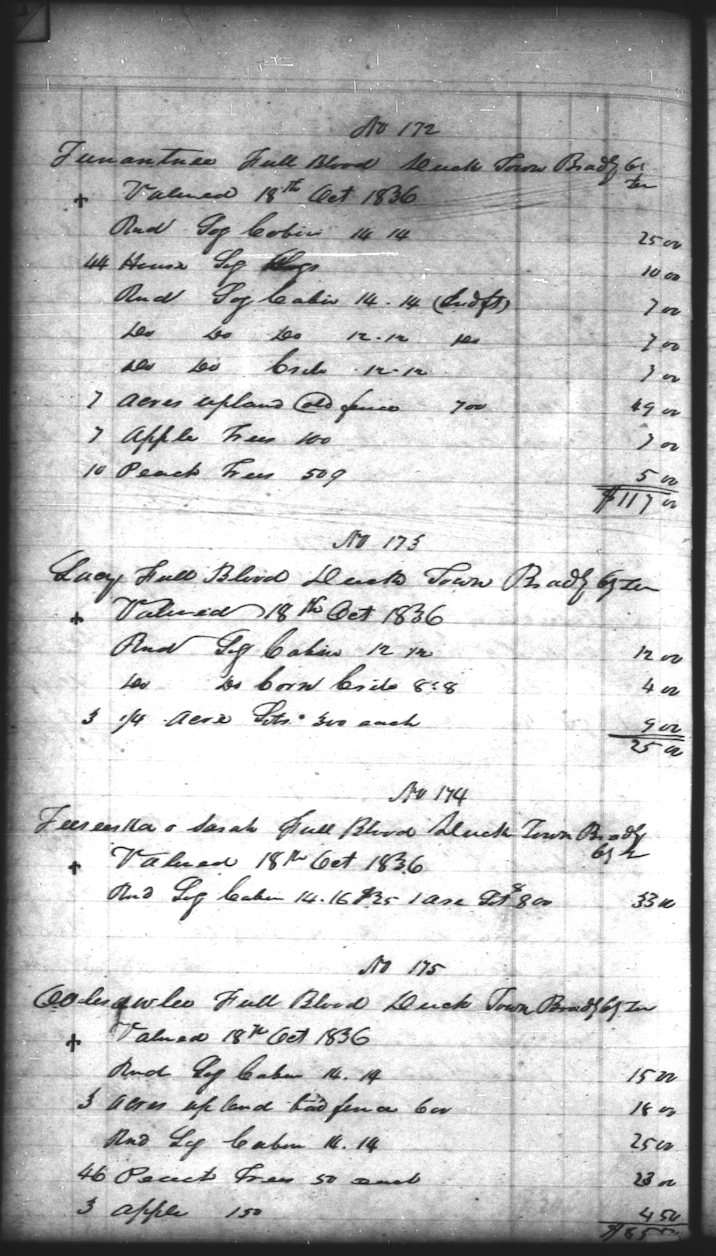 No 172
Full Blood Duck Town Bradly Cy
Ten
Valued 18th Oct 1836
Rnd Log Cabin 14 14 25 00
44 House Log 10 00
Rnd Log Cabin 14 . 14 7 00
Do Do Do 12 . 12 Do 7 00
Do Do Crib 12 . 12 7 00
7 Acres upland old fence 700 49 00
7 Apple Trees 100 7 00
10 Peach Trees 50 5 00
$117 00
No 173
Full Blood Duck Town Bradly Cy Ten
Valued 18th Oct 1836
Rnd Log Cabin 12 12 12 00
Do Do Corn Crib 8 . 8 4 00
3 1/4 Acre Lots 300 each 9 00
25 00
No 174
& Sarah Full Blood Duck Town Bradly
Cy
Valued 18th Oct 1836
Rnd Log Cabin 14 . 16 $25 1 acre Lot $8 00 33 00
No 175
Full Blood Duck Town Bradly Cy Ten
Valued 18th Oct 1836
Rnd Log Cabin 14 . 14 15 00
3 Acres upland bad fence 600 18 00
Rnd Log Cabin 14 . 14 25 00
46 Peach Trees 50 each 23 00
3 Apple 150 4 50